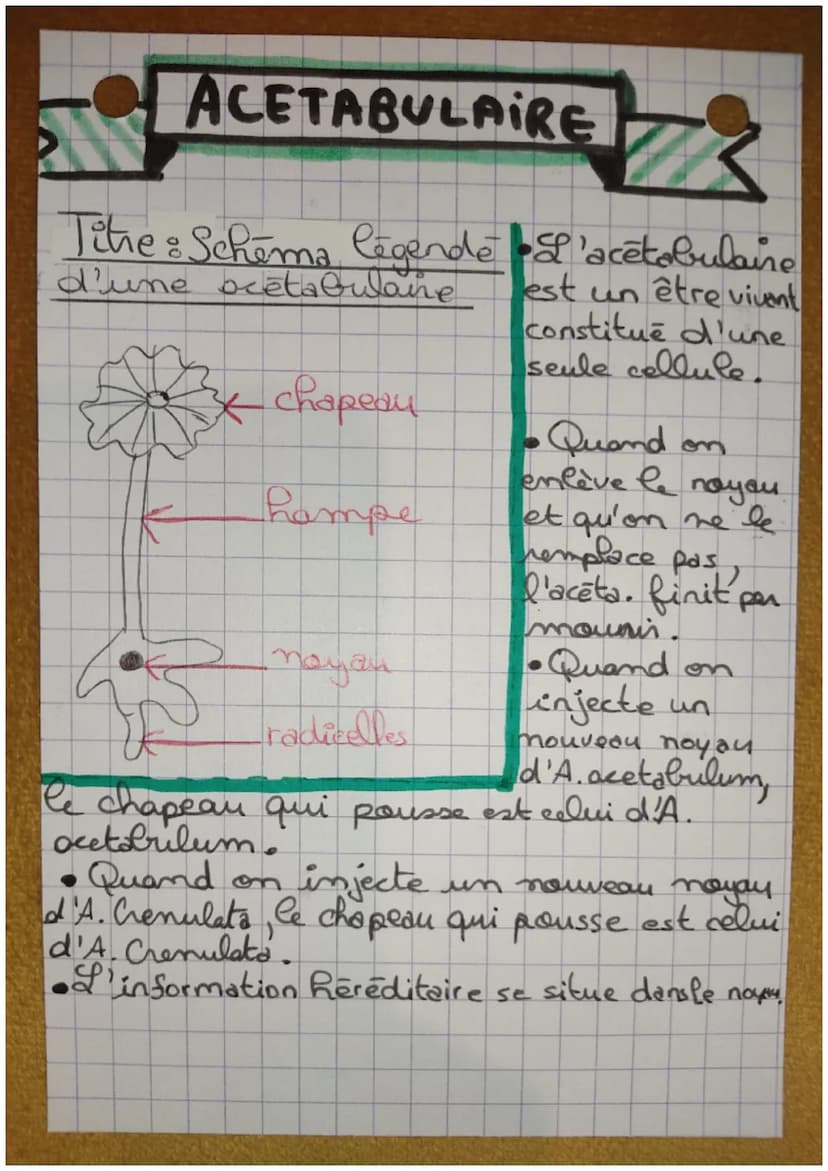 ACETABULAIRE
Titre : Schéma légendé
d'une acétabulaire
chapeau
hampe
noyau
radicelles
• L'acétabulaire
est un être vivant
constitué d'une
seule cellule.
• Quand on
enlève le noyau
et qu'on ne le
remplace pas,
l'acéta. finit par
mourir.
• Quand on
injecte un
nouveau noyau
d'A. acetabulum,
le chapeau qui pousse est celui d'A.
acetabulum.
• Quand on injecte un nouveau noyau
d'A. Crenulata, le chapeau qui pousse est celui
d'A. Crenulata.
• L'information héréditaire se situe dans le noyau.